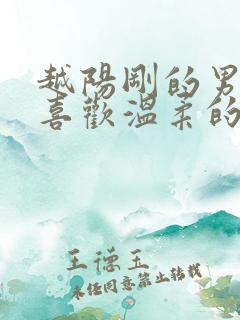 越陽剛的男
喜歡溫柔的
王德玉
未經同意禁止轉載